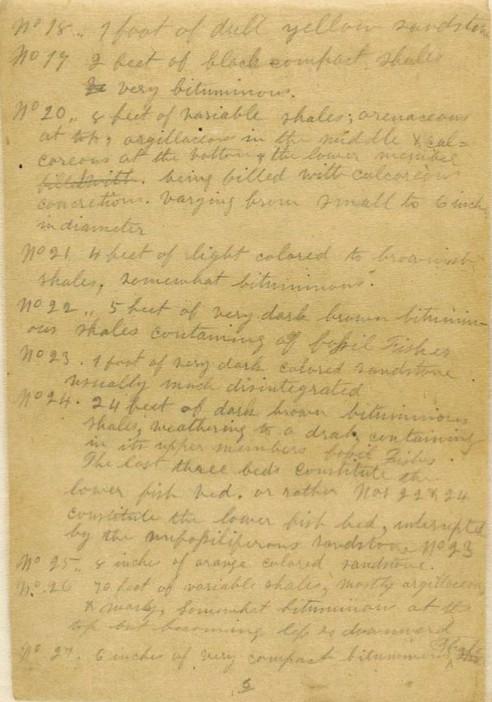 No 18.. 1 foot of dull yellow sandstone
No 19 2 feet of black compact shales
very bituminous.
No 20.. 8 feet of variable shales; arenaceous
at top, argillaceous in the middle & cal=
careous at the bottom, the lower member
being filled with calcareous
concretions. varying from small to 6 inch
in diameter
No 21 4 feet of light colored to brownish
shales, somewhat bituminous.
No 22.. 5 feet of very dark brown bitumin-
ous shales containing fossil Fishes
No 23. 1 foot of very dark colored sandstone
usually much disintegrated
No 24. 24 feet of dark brown bituminous
shales, weathering to a drab, containing
in its upper members fossil Fishes.
The last three beds constitute the
lower fish bed. or rather Nos 22 & 24
constitute the lower fish bed, interrupted
by the unfossiliferous sandstone No 23
No 25.. 8 inches of orange colored sandstone.
No. 26 70 feet of variable shales, mostly argillaceous
& marly, somewhat bituminous at the
top but becoming less so downward
No 27. 6 inches of very compact bituminous
5